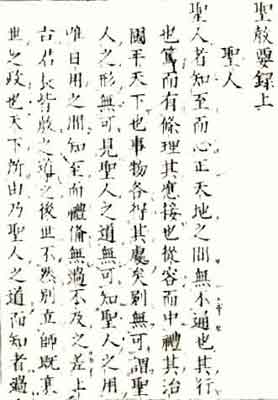 聖教要録上
聖人
聖人者知至而心正天地之間無不通也其行
也篤而有條理其應接也從容而中禮其治
國平天下也事物各得其處矣別無可謂聖
人之形無可見聖人之道無可知聖人之用
唯日用之間知至而禮備無過不及之差上
古君長皆敎之道之後世不然別立師既
世之政也天下所由乃聖人之道而知者過